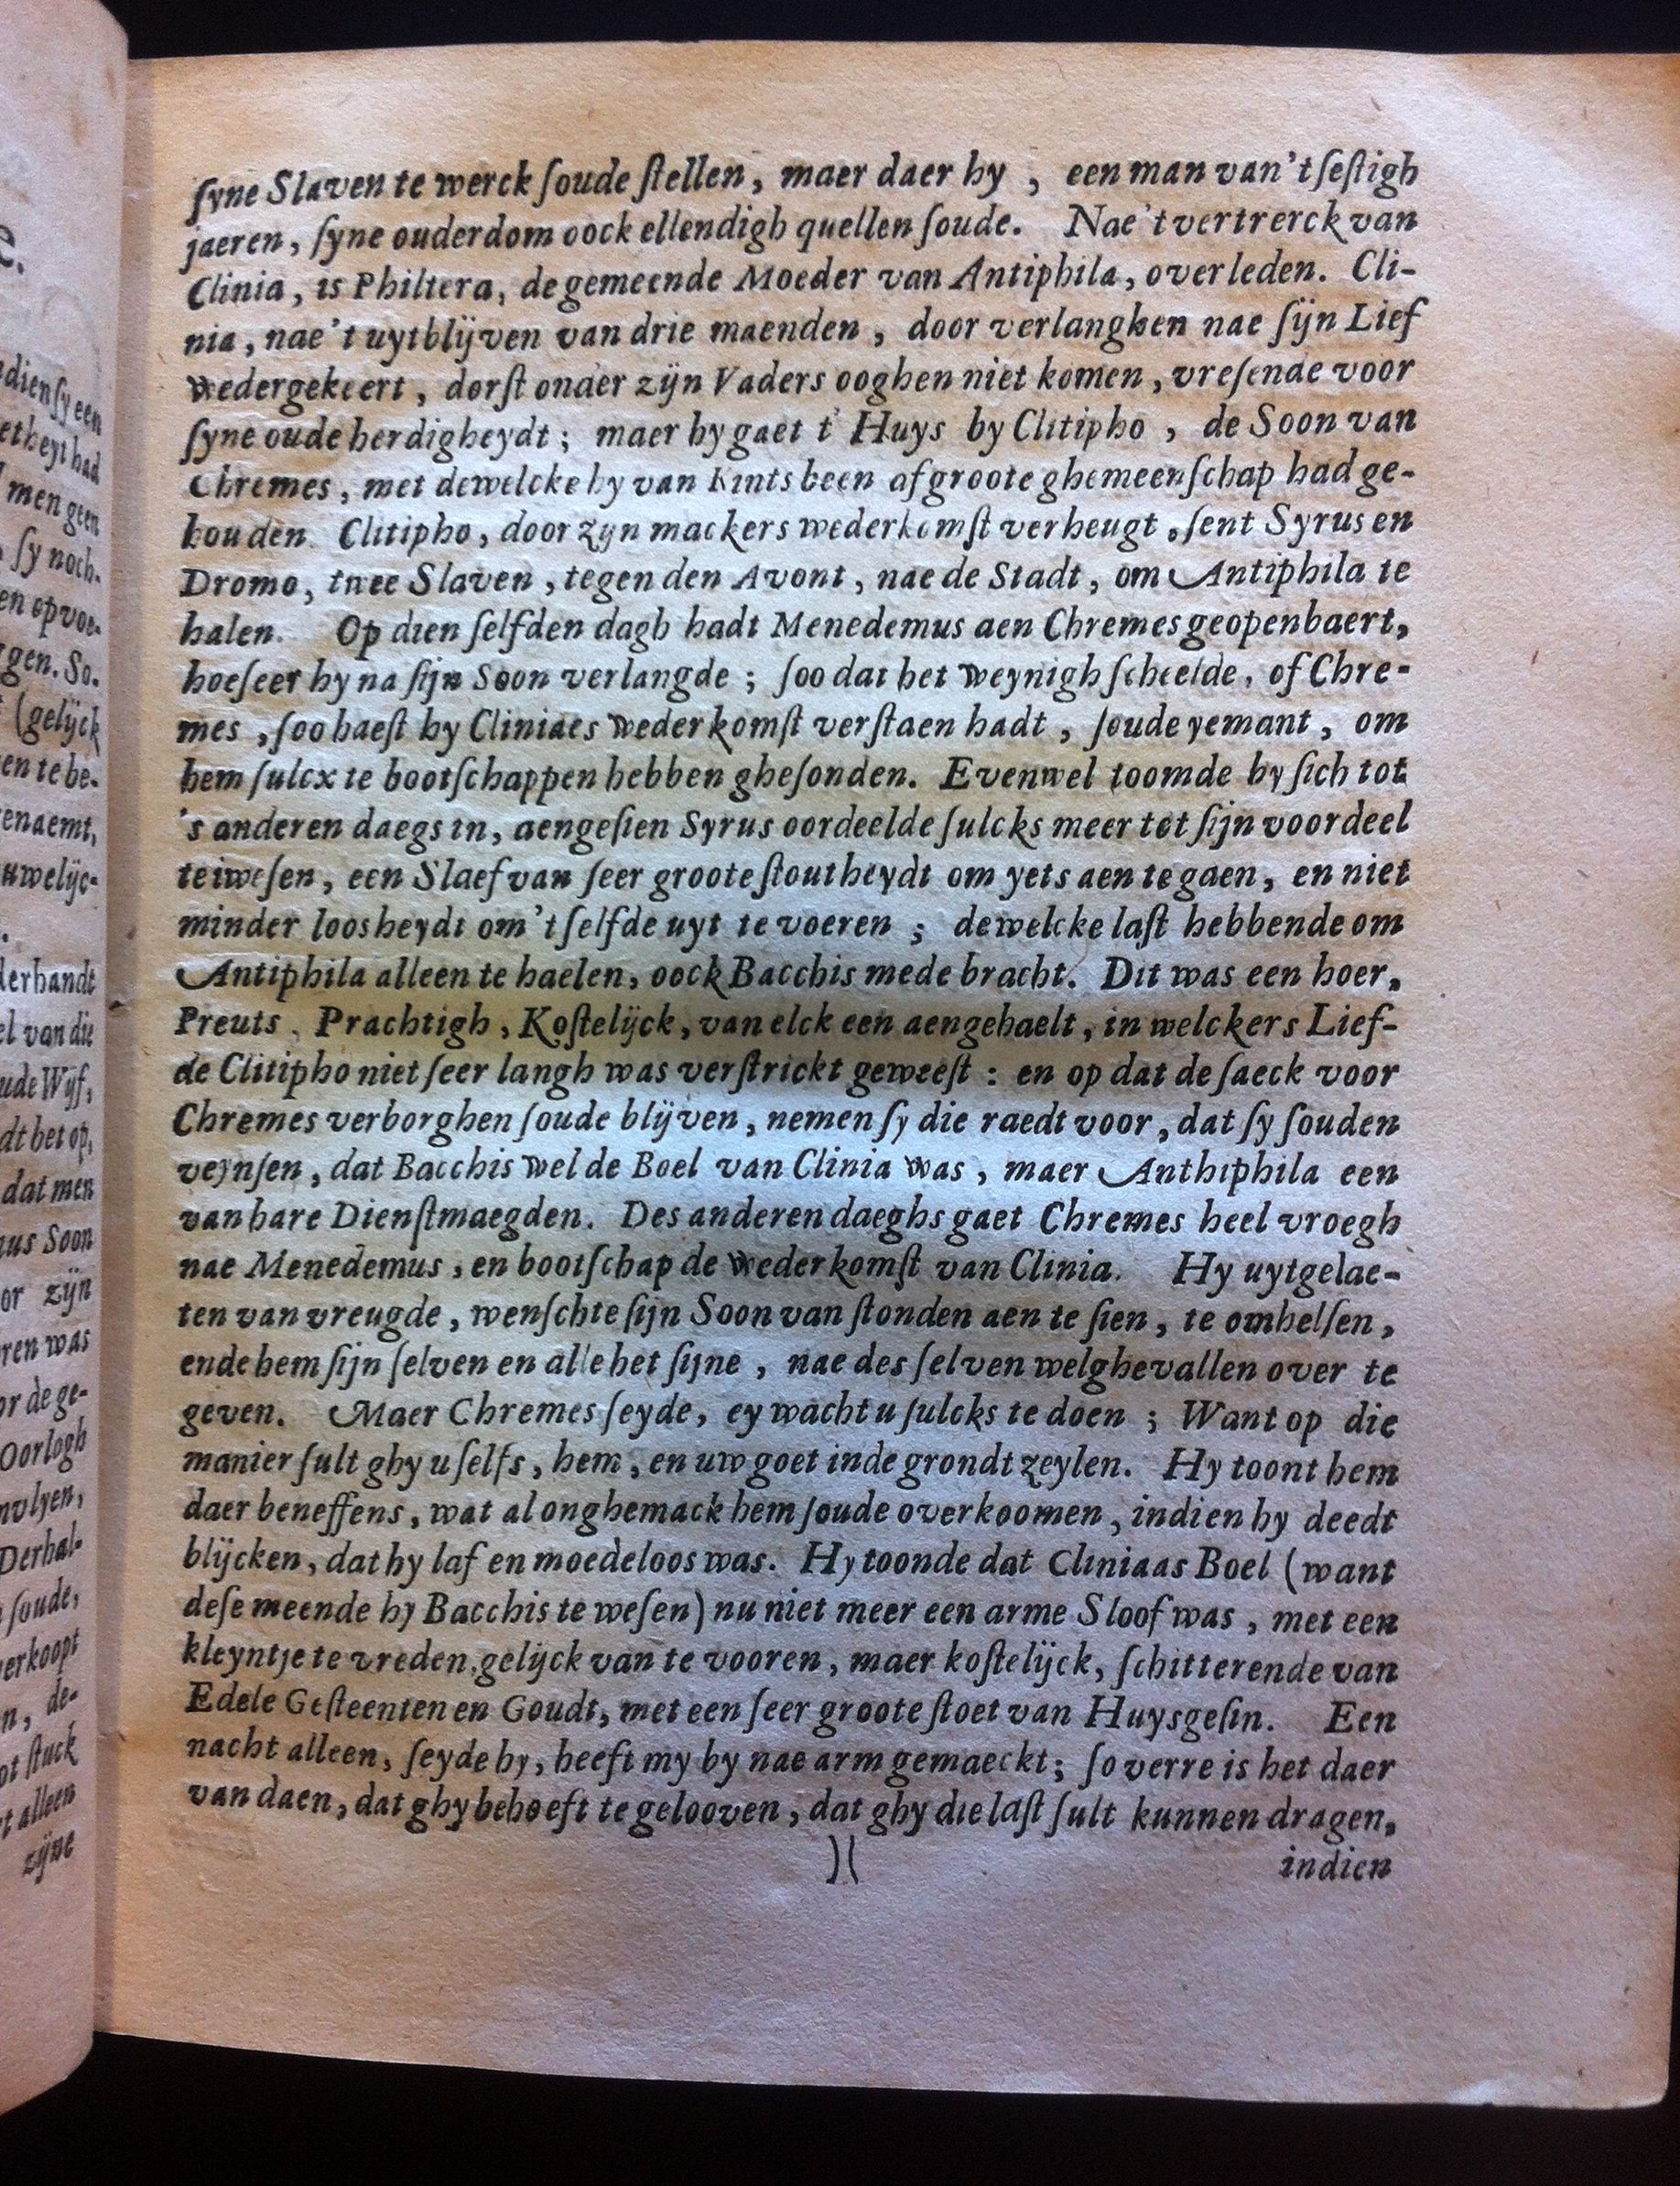 ſyne Slaven te werck ſoude ſtellen, maer daer hy, een man van 't ſeſtigh
jaeren, ſyne ouderdom oock ellendigh quellen ſoude. Nae 't vertrerck van
Clinia, is Philtera, de gemeende Moeder van Antiphila, overleden. Cli-
nia, nae 't uytblijven van drie maenden, door verlanghen nae ſijn Lief
wedergekeert, dorſt onder zijn Vaders ooghen niet komen, vreſende voor
ſyne oude herdigheydt; maer hy gaet t' Huys by Clitipho, de Soon van
Chremes, met dewelcke hy van Kints been af groote ghemeenſchap had ge-
houden. Clitipho, door zyn mackers wederkomſt verheugt, ſent Syrus en
Dromo, twee Slaven, tegen den Avont, nae de Stadt, om Antiphila te
halen. Op dien ſelfden dagh hadt Menedemus aen Chremes geopenbaert,
hoeſeer hy na ſijn Soon verlangde; ſoo dat het weynigh ſcheelde, of Chre-
mes, ſoo haeſt hy Cliniaes wederkomſt verſtaen hadt, ſoude yemant, om
hem ſulcx te bootſchappen hebben gheſonden. Evenwel toomde hy ſich tot
's anderen daegs in, aengeſien Syrus oordeelde ſulcks meer tot ſijn voordeel
te iweſen, een Slaef van ſeer groote ſtoutheydt om yets aen te gaen, en niet
minder loosheydt om 't ſelfde uyt te voeren; dewelcke laſt hebbende om
Antiphila alleen te haelen, oock Bacchis mede bracht. Dit was een hoer,
Preuts, Prachtigh, Koſtelijck, van elck een aengehaelt, in welckers Lief-
de Clitipho niet ſeer langh was verſtrickt geweeſt: en op dat de ſaeck voor
Chremes verborghen ſoude blijven, nemen ſy die raedt voor, dat ſy ſouden
veynſen, dat Bacchis wel de Boel van Clinia was, maer Anthiphila een
van hare Dienſtmaegden. Des anderen daeghs gaet Chremes heel vroegh
nae Menedemus, en bootſchap de wederkomſt van Clinia. Hy uytgelae-
ten van vreugde, wenſchte ſijn Soon van ſtonden aen te ſien, te omhelſen,
ende hem ſijn ſelven en alle het ſijne, nae des ſelven welghevallen over te
geven. Maer Chremes ſeyde, ey wacht u ſulcks te doen; Want op die
manier ſult ghy u ſelfs, hem, en uw goet inde grondt zeylen. Hy toont hem
daer beneffens, wat al onghemack hem ſoude overkoomen, indien hy deedt
blijcken, dat hy laf en moedeloos was. Hy toonde dat Cliniaas Boel (want
deſe meende hy Bacchis te weſen) nu niet meer een arme Sloof was, met een
kleyntje te vreden, gelijck van te vooren, maer koſtelijck, ſchitterende van
Edele Geſteenten en Goudt, met een ſeer groote ſtoet van Huysgeſin. Een
nacht alleen, ſeyde hy, heeft my by nae arm gemaeckt; ſo verre is het daer
van daen, dat ghy behoeft te gelooven, dat ghy die laſt ſult kunnen dragen,
)(
indien
e.
dien ſy een
etheyt had
men geen
ſy noch-
en opvoe-
gen. So.
(gelijck
en te be-
enaemt,
uwelijc-
derhandt
el van die
ude Wijf,
dt het op,
dat men
us Soon
or zijn
ren was
or de ge-
Oorlogh
nvlyen,
Derhal-
ſoude,
verkoopt
n, de-
ot ſtuck
t alleen
zijne